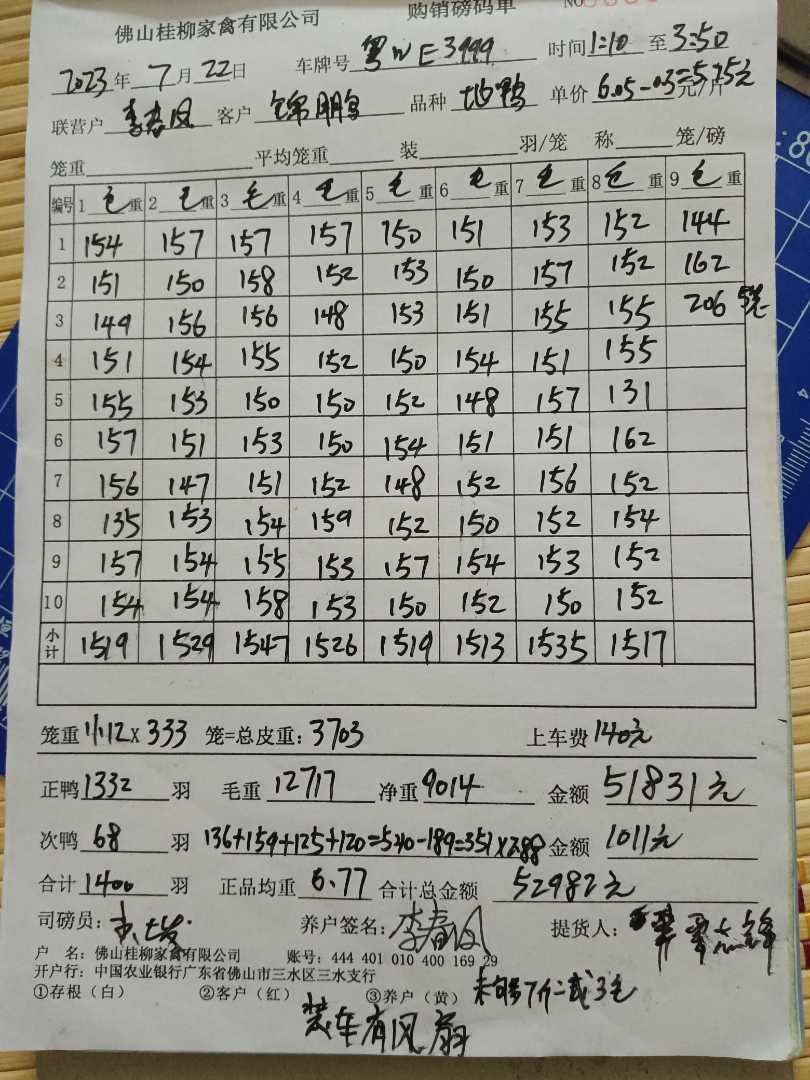 佛山桂柳家禽有限公司 购销磅码单 NO
2023年7月22日 车牌号 粤WE3999 时间1:10至3:50
联营户 李春凤 客户 锦鹏 品种 地鸭 单价6.05-0.3=5.75元/斤
笼重 平均笼重 装 羽/笼 称 笼/磅
编号 1毛重 2毛重 3毛重 4毛重 5毛重 6毛重 7毛重 8毛重 9毛重
1 154 157 157 157 150 151 153 152 144
2 151 150 158 152 153 150 157 152 162
3 149 156 156 148 153 151 155 155 206 5笼
4 151 154 155 152 150 154 151 155
5 155 153 150 150 152 148 157 131
6 157 151 153 150 154 151 151 162
7 156 147 151 152 148 152 156 152
8 135 153 154 159 152 150 152 154
9 157 154 155 153 157 154 153 152
10 154 154 158 153 150 152 150 152
小计 1519 1529 1547 1526 1519 1513 1535 1517
笼重11.12x333 笼=总皮重:3703 上车费140元
正鸭1332羽 毛重12717 净重9014 金额51831元
次鸭68羽 136+159+125+120=540-189=351x2.88 金额1011元
合计1400羽 正品均重6.77 合计总金额52982元
司磅员: 养户签名:李春凤 提货人:
户 名:佛山桂柳家禽有限公司 账号:444 401 010 400 169 29
开户行:中国农业银行广东省佛山市三水区三水支行
①存根(白) ②客户(红) ③养户(黄) 未够7斤二或3毛
装车有风扇